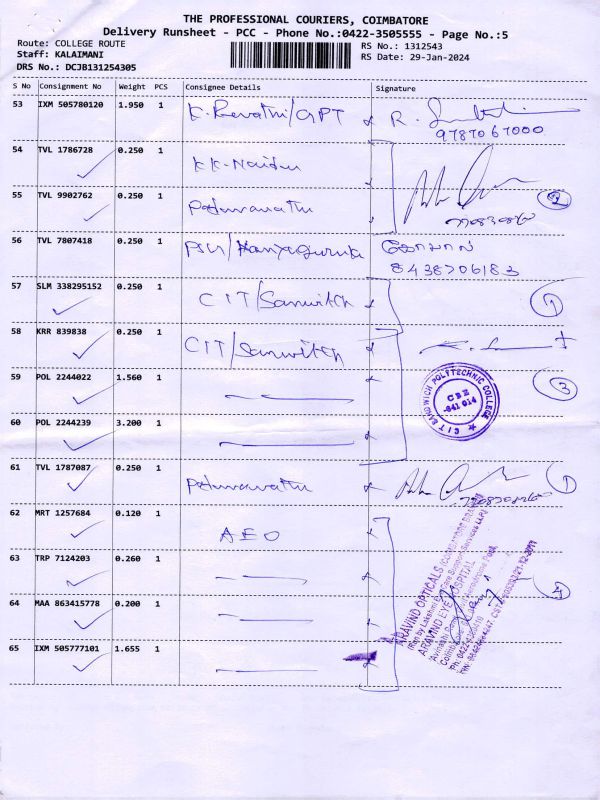 THE PROFESSIONAL COURIERS, COIMBATORE
Delivery Runsheet - PCC - Phone No.:0422-3505555 - Page No.:5
Route: COLLEGE ROUTE
Staff: KALAIMANI
DRS No.: DCJB131254305
RS No.: 1312543
RS Date: 29-Jan-2024
S No Consignment No Weight PCS Consignee Details Signature
53 IXM 505780120 1.950 1 K. Revathi/GPT R.
9787067000
54 TVL 1786728 0.250 1 KK-Naidu
55 TVL 9902762 0.250 1 2
56 TVL 7807418 0.250 1 கோமால்
8438706183
57 SLM 338295152 0.250 1 CIT/Sanwitch 1
58 KRR 839838 0.250 1 CIT/Sanwitch
59 POL 2244022 1.560 1 3
CIT SANDWICH POLYTECHNIC COLLEGE
CBE
-641 014
60 POL 2244239 3.200 1
61 TVL 1787087 0.250 1 1
62 MRT 1257684 0.120 1 AEO
63 TRP 7124203 0.260 1 4
64 MAA 863415778 0.200 1
65 IXM 505777101 1.655 1
ARAVIND OPTICALS
ARAVIND EYE HOSPITAL